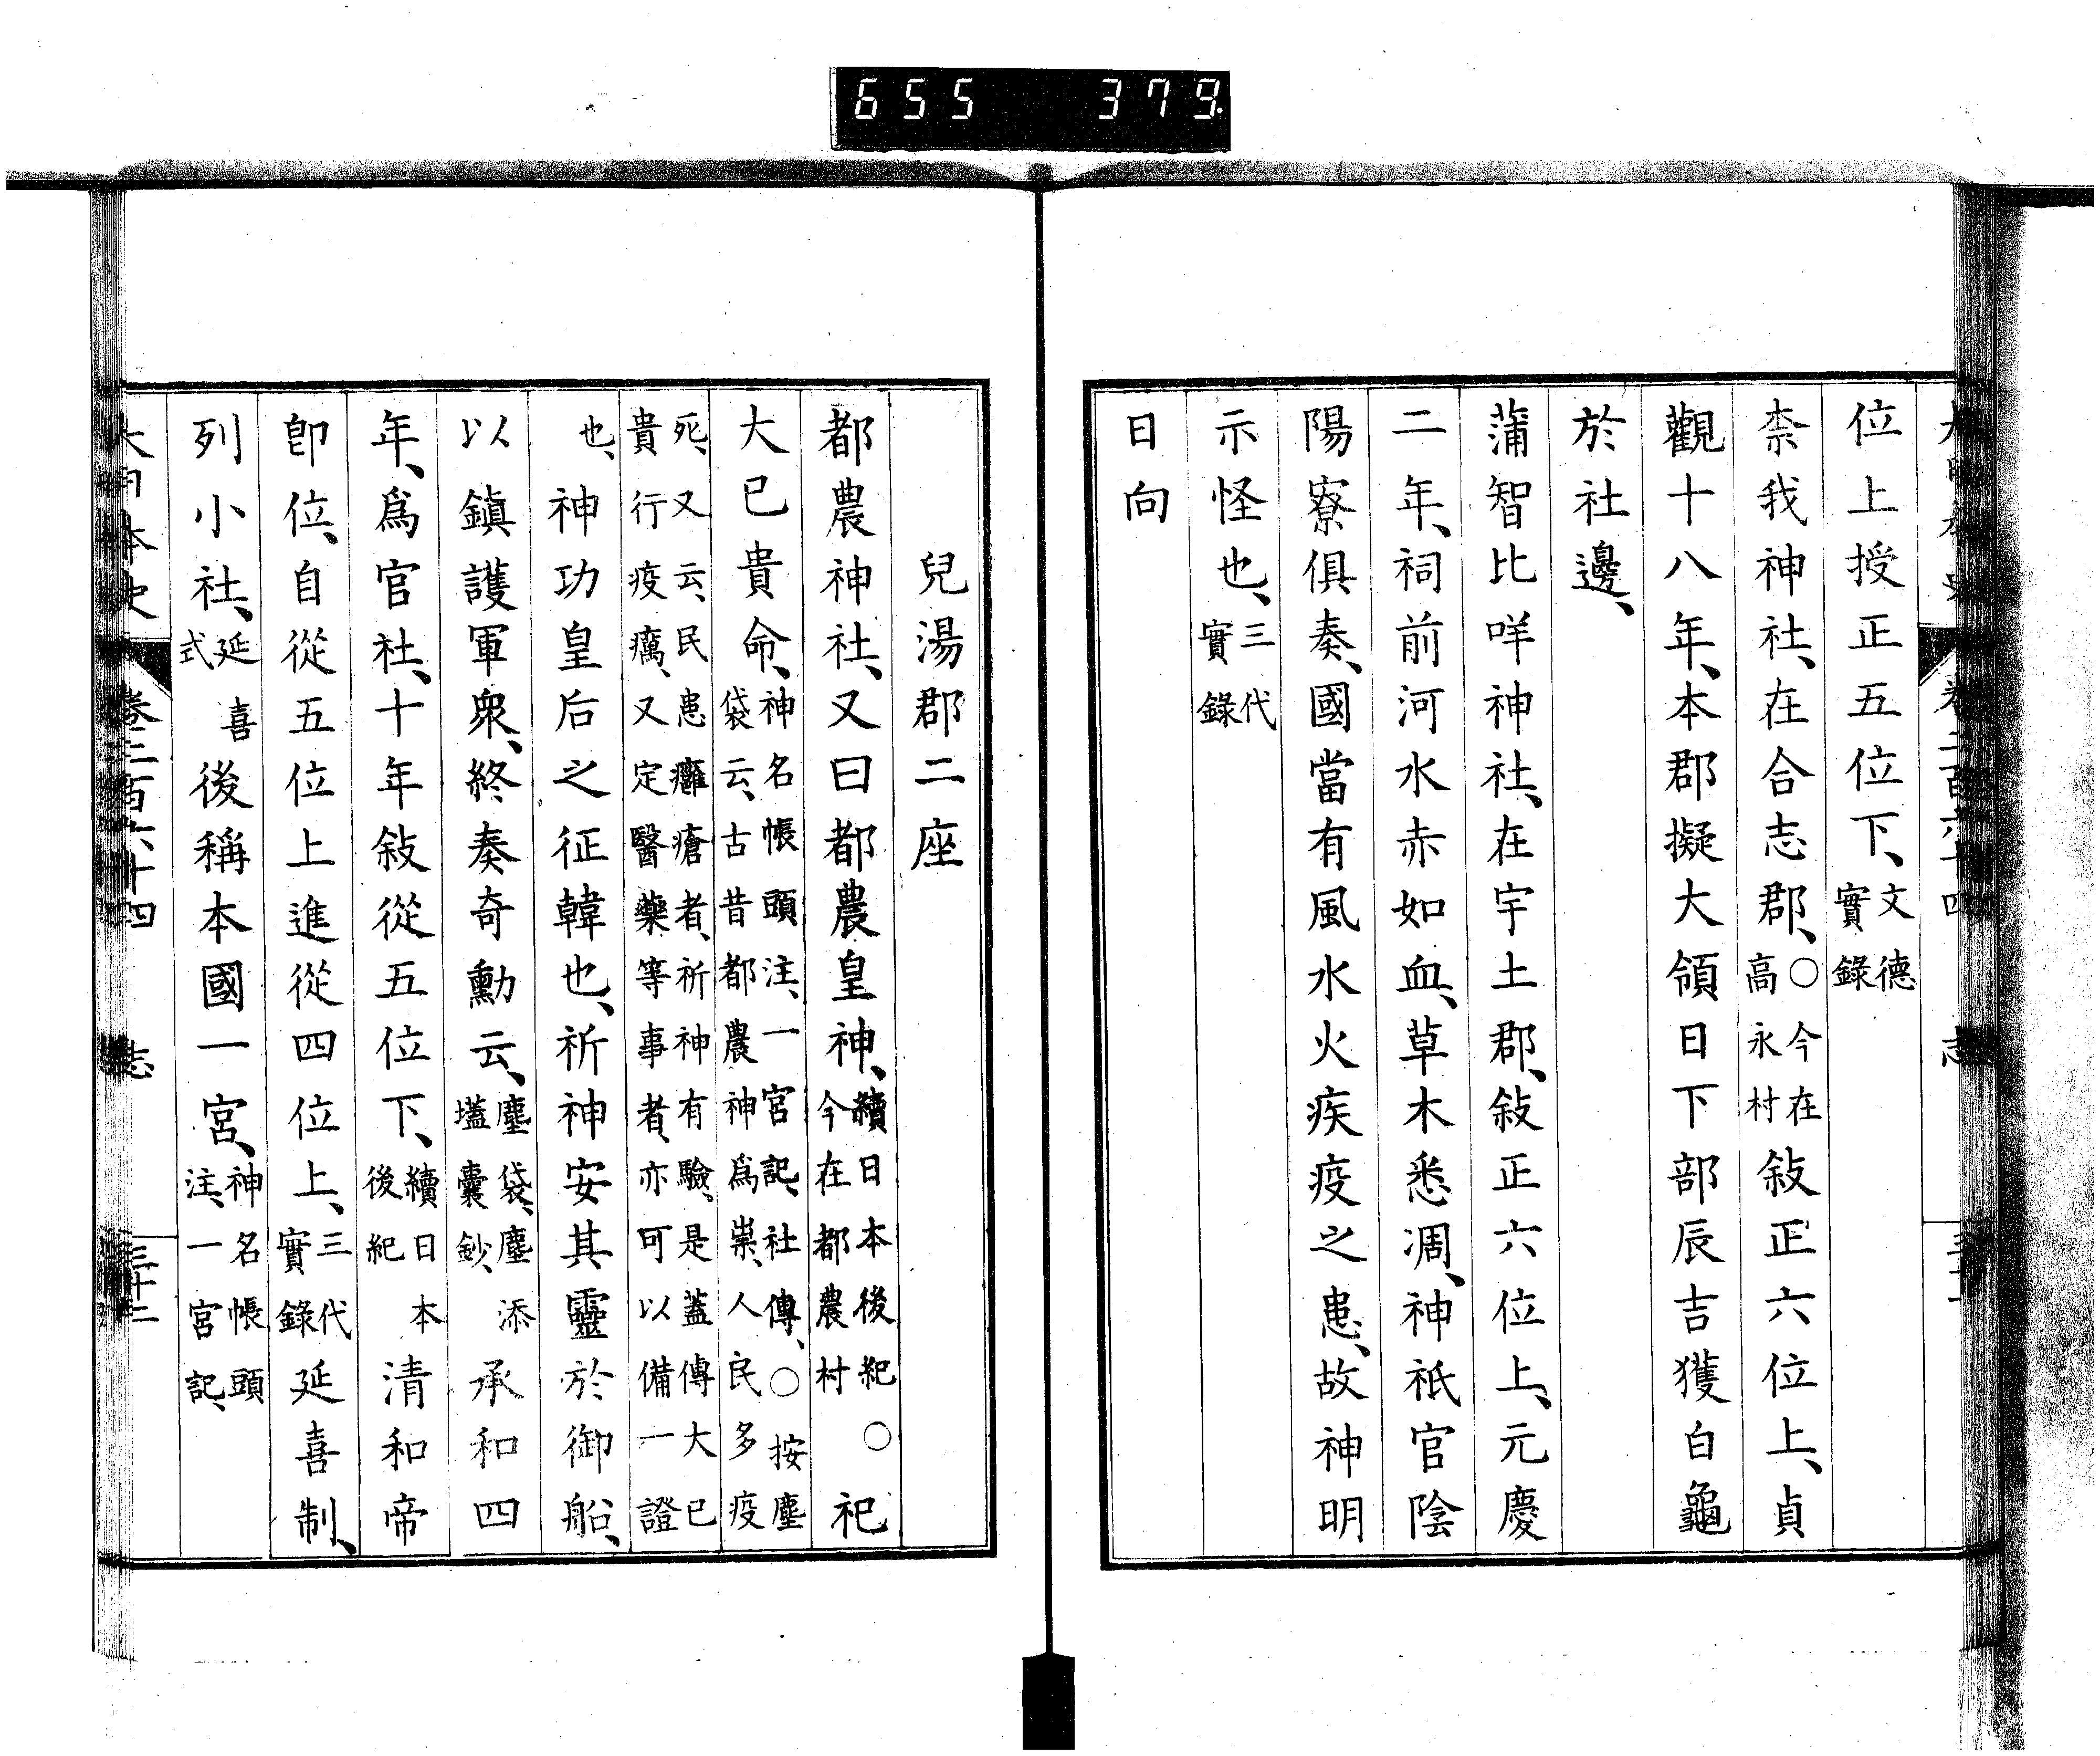 655 379
大日本史 卷二百六十四 志 三十一
位上授正五位下、文德實錄
柰我神社、在合志郡、○今在高永村敍正六位上、貞
觀十八年、本郡擬大領日下部辰吉獲白龜
於社邊、
蒲智比咩神社、在宇土郡、敍正六位上、元慶
二年、祠前河水赤如血、草木悉凋、神祇官陰
陽寮俱奏、國當有風水火疾疫之患、故神明
示怪也、三代實錄
日向
兒湯郡二座
都農神社、又曰都農皇神、續日本後紀○今在都農村祀
大已貴命、神名帳頭注、一宮記、社傳、○按塵袋云、古昔都農神爲祟、人民多疫
死、又云、民患癰瘡者、祈神有驗、是蓋傳大已貴行疫癘、又定醫藥等事者、亦可以備一證
也、神功皇后之征韓也、祈神安其靈於御船、
以鎭護軍衆、終奏奇勳云、塵袋、塵添壒囊鈔、承和四
年、爲官社、十年敍從五位下、續日本後紀淸和帝
卽位、自從五位上進從四位上、三代實錄延喜制、
列小社、延喜式後稱本國一宮、神名帳頭注、一宮記、
大日本史 卷二百六十四 志 三十二